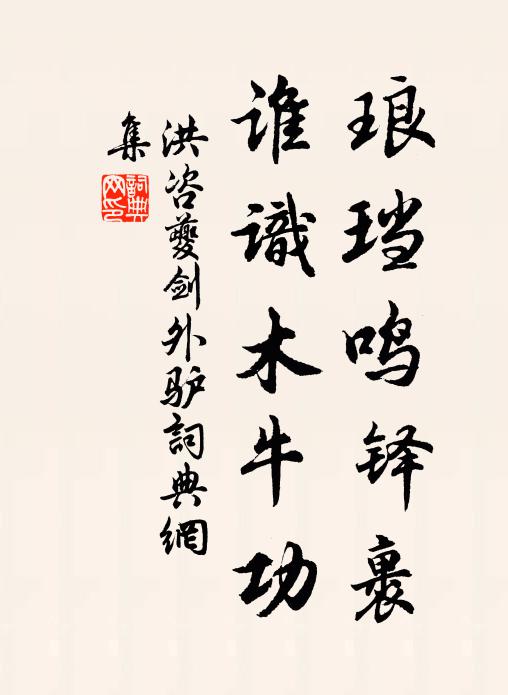 琅珰鸣铎裹
谁識木牛功
洪咨夔剑外驴詞典網
集
詞典网印